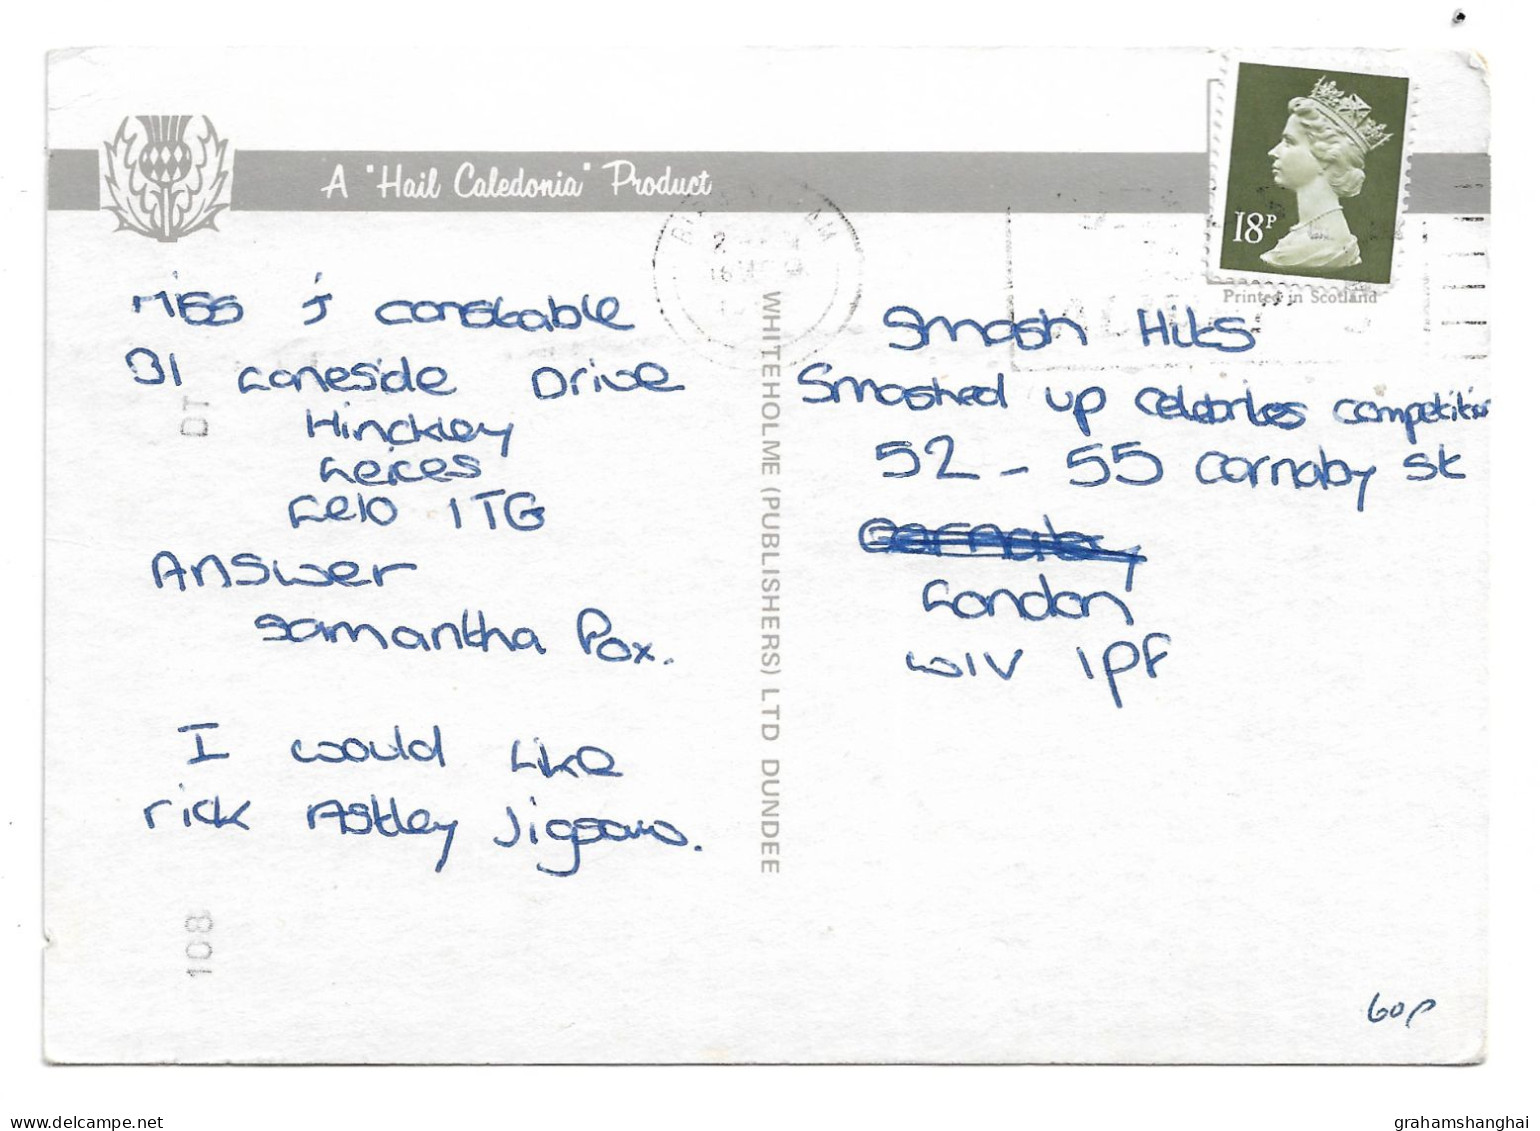 A "Hail Caledonia" Product
18P
Printed in Scotland
Miss J Constable
31 Laneside Drive
Hinckley
Leices
Le10 1TG
Answer
Samantha Fox.
I would like
rick Astley Jigsaw.
WHITEHOLME (PUBLISHERS) LTD DUNDEE
Smash Hits
Smashed up celebrites competition
52 - 55 carnaby st
London
W1V 1PF
DT
108
60p
grahamshanghai
delcampe.net